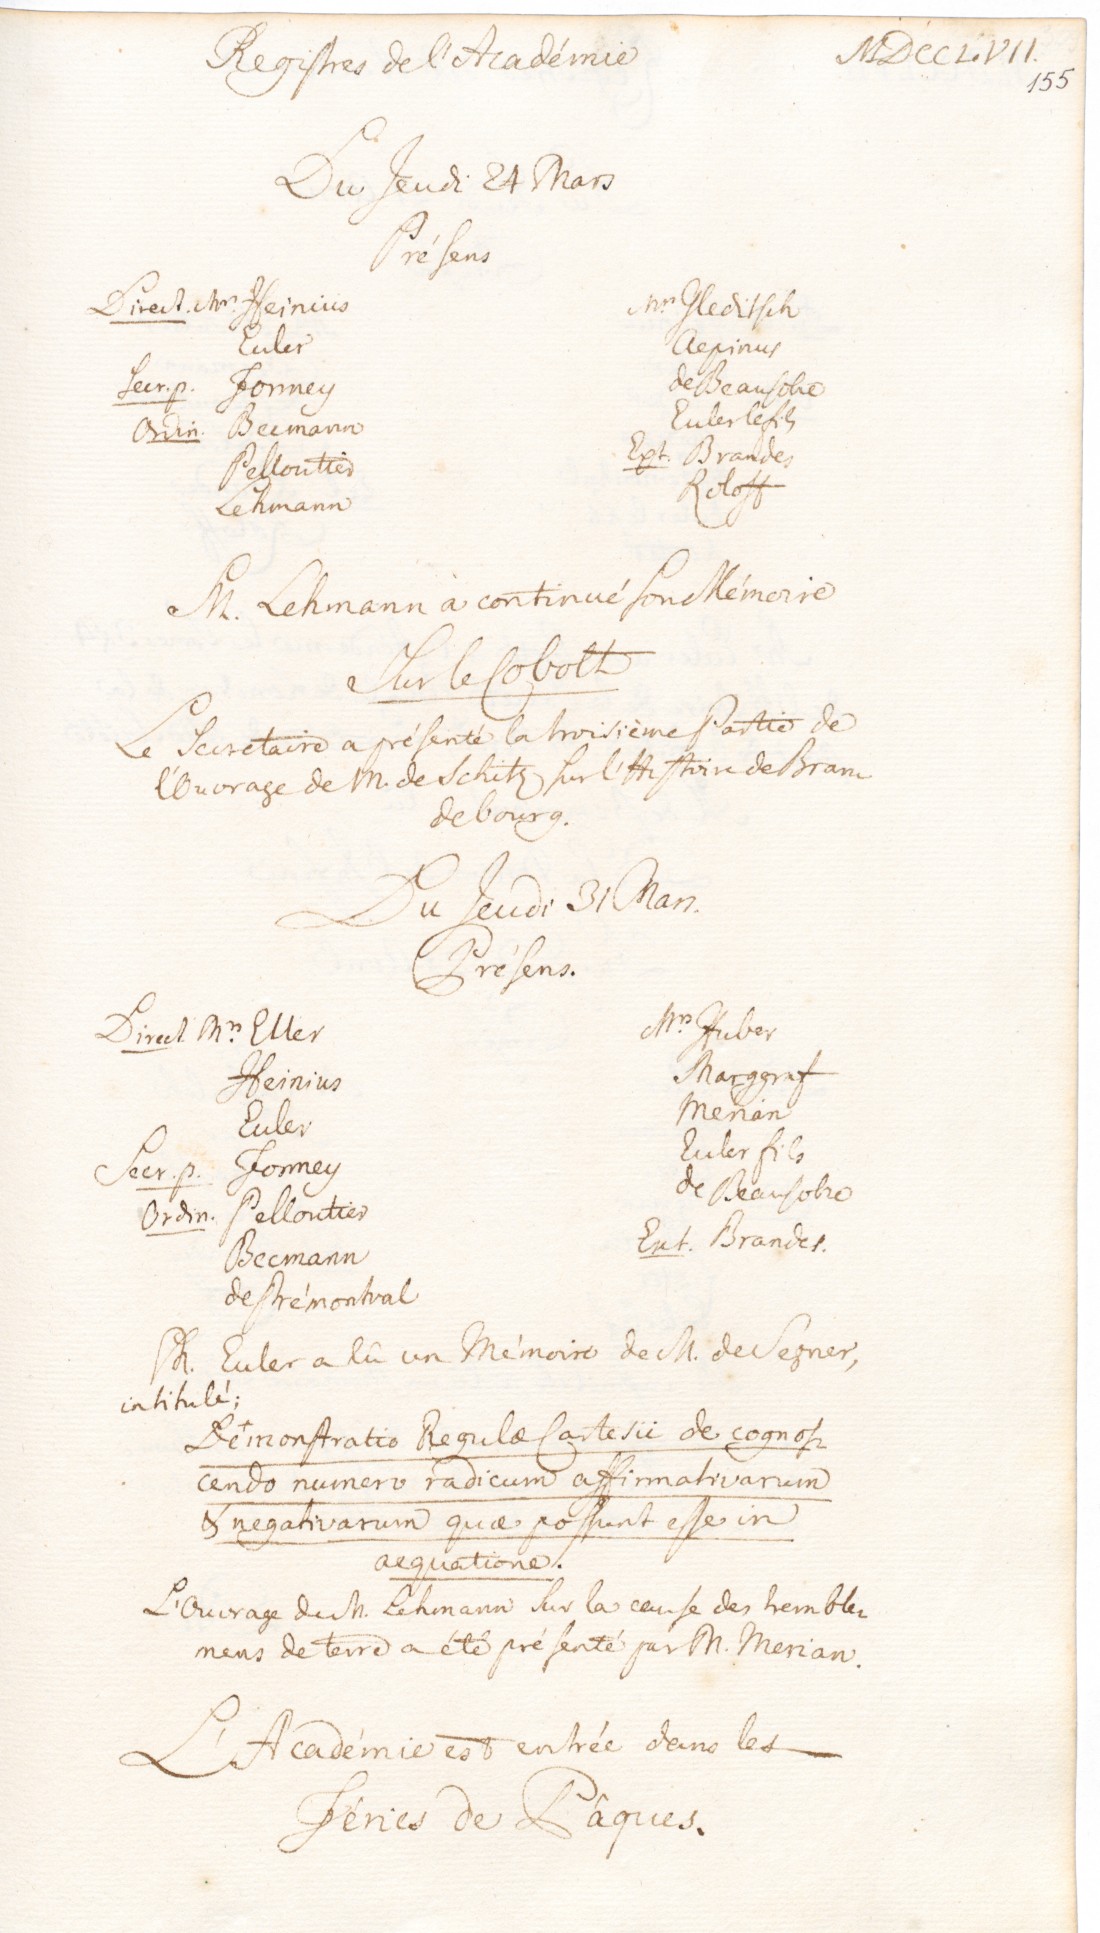 Registres de l'Académie
MDCCLVII.
155
Du Jeudi 24 Mars
Présens
Direct. Mrs. Heinius
Euler
Secr. p. Formey
Ordin. Becmann
Pelloutier
Lehmann
Mrs Gleditsch
Aepinus
de Beausobre
Euler le fils
Ext. Brandes
Roloff
M. Lehmann a continué son Mémoire
Sur le Cobolt
Le Secretaire a présenté la troisième Partie de
l'Ouvrage de M. de Schitz sur l'Histoire de Bran
debourg.
Du Jeudi 31 Mars.
Présens.
Direct. Mrs Eller
Heinius
Euler
Secr. p. Formey
Ordin. Pelloutier
Becmann
de Prémontval
Mrs Huber
Marggraf
Merian
Euler fils
de Beausobre
Ext. Brandes.
M. Euler a lû un Mémoire de M. de Segner,
intitulé;
Démonstratio Regulæ Cartesii de cognos-
cendo numero radicum affirmativarum
& negativarum quæ possunt esse in
aequatione.
L'Ouvrage de M. Lehmann sur la cause des tremble-
mens de terre a été présenté par M. Merian.
L'Académie est entrée dans les
Féries de Pâques.